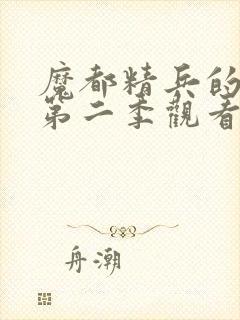 魔都精兵的
第二季觀看
舟潮